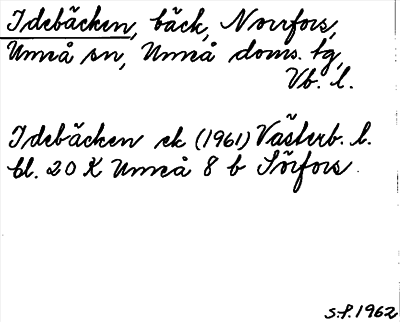 Idebäcken, bäck, Norrfors,
Umeå sn, Umeå doms. tg,
Vb. l.
Idebäcken ek (1961) Västerb. l.
bl. 20 K Umeå 8 b Sörfors
S.P. 1962